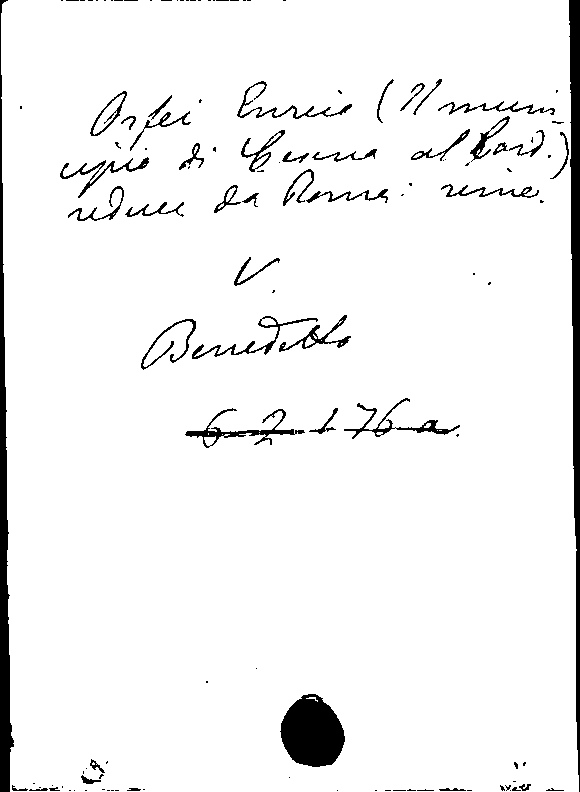 Orfei Enrico (Il muni-
cipio di Cesena al Card.)
reduce da Roma: rime.
V.
Benedetto
6 2 1 76 a.